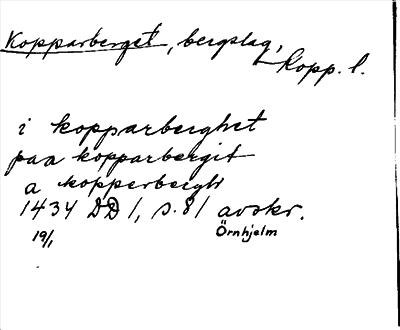 Kopparberget, bergslag,
Kopp. l.
i kopparberghet
paa kopparbergit
a kopperbergh
1434 DD 1, s. 81 avskr.
19/1 Örnhjelm